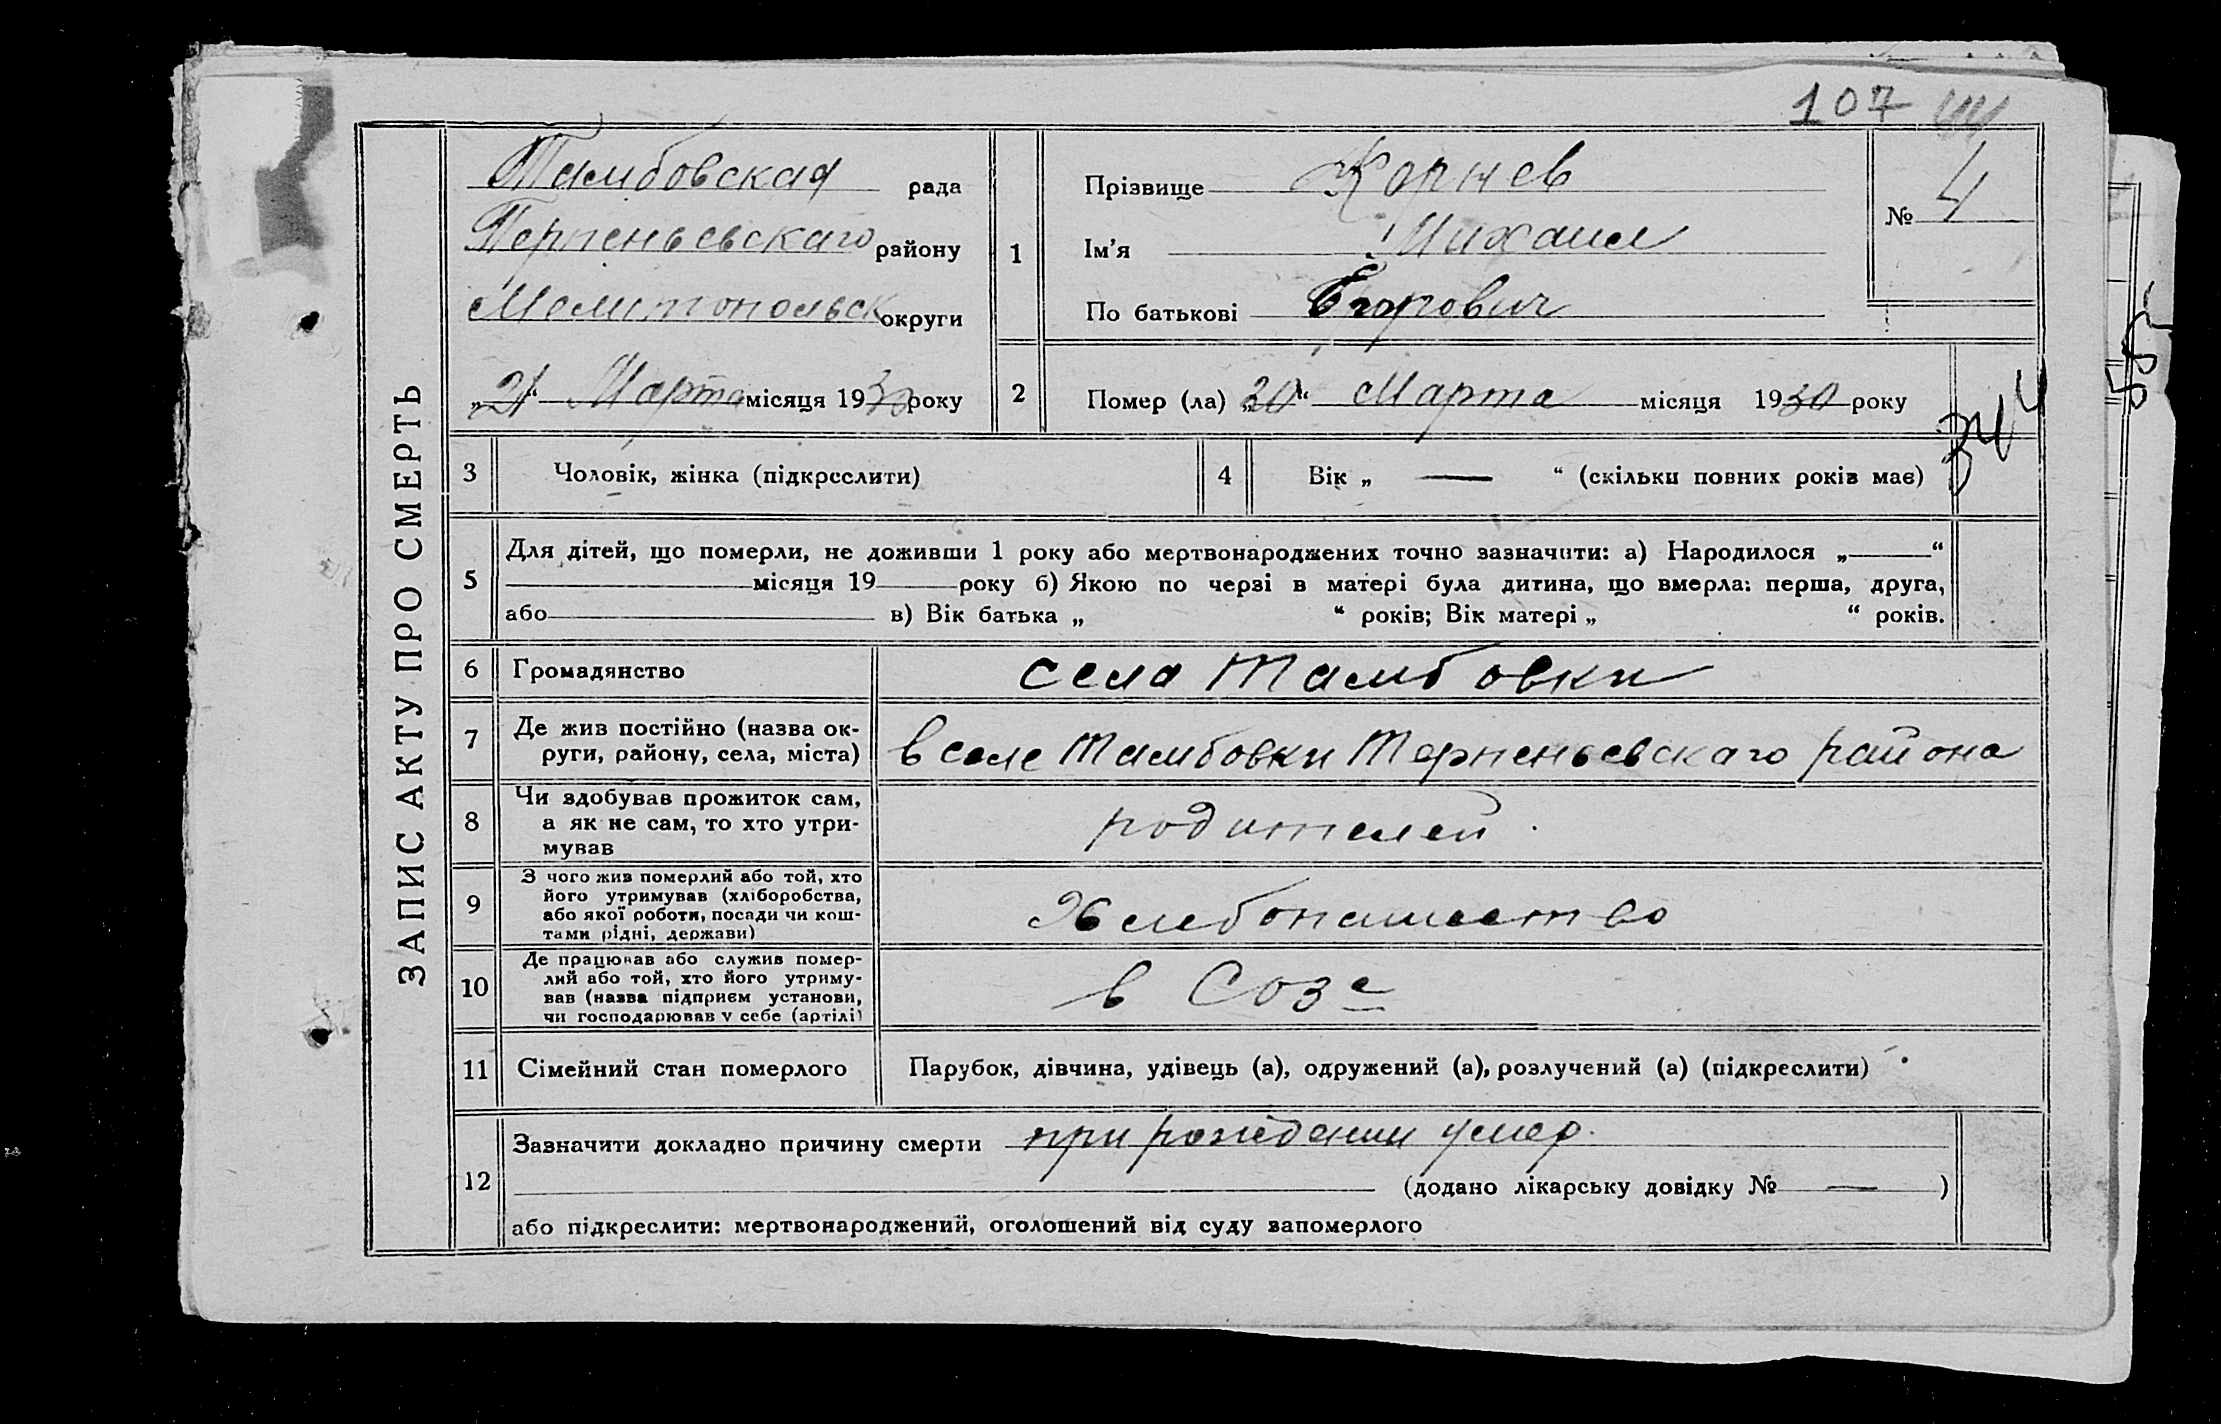 107 44
ЗАПИС АКТУ ПРО СМЕРТЬ
Тамбовская рада
Терпеньевскаго району
Мелитопольск округи
„21“ Марта місяця 1930 року
1
Прізвище Корнев
Ім’я Михаил
По батькові Егорович
№ 4
2
Помер (ла) „20“ Марта місяця 1930 року
344
55
3 Чоловік, жінка (підкреслити)
4 Вік „ — “ (скільки повних років має)
5
Для дітей, що померли, не доживши 1 року або мертвонароджених точно зазначити: а) Народилося „ “
місяця 19 року б) Якою по черзі в матері була дитина, що вмерла: перша, друга,
або в) Вік батька „ “ років; Вік матері „ “ років.
6 Громадянство села Тамбовки
7 Де жив постійно (назва ок-
руги, району, села, міста) в селе Тамбовки Терпеньевскаго района
8 Чи здобував прожиток сам,
а як не сам, то хто утри-
мував родителей
9 З чого жив померлий або той, хто
його утримував (хліборобства,
або якої роботи, посади чи кош-
тами рідні, держави) Хлебопашество
10 Де працював або служив помер-
лий або той, хто його утриму-
вав (назва підприєм установи,
чи господарював у себе (артілі) в Созе
11 Сімейний стан померлого Парубок, дівчина, удівець (а), одружений (а), розлучений (а) (підкреслити)
12
Зазначити докладно причину смерти при рождении умер.
(додано лікарську довідку № — )
або підкреслити: мертвонароджений, оголошений від суду запомерлого